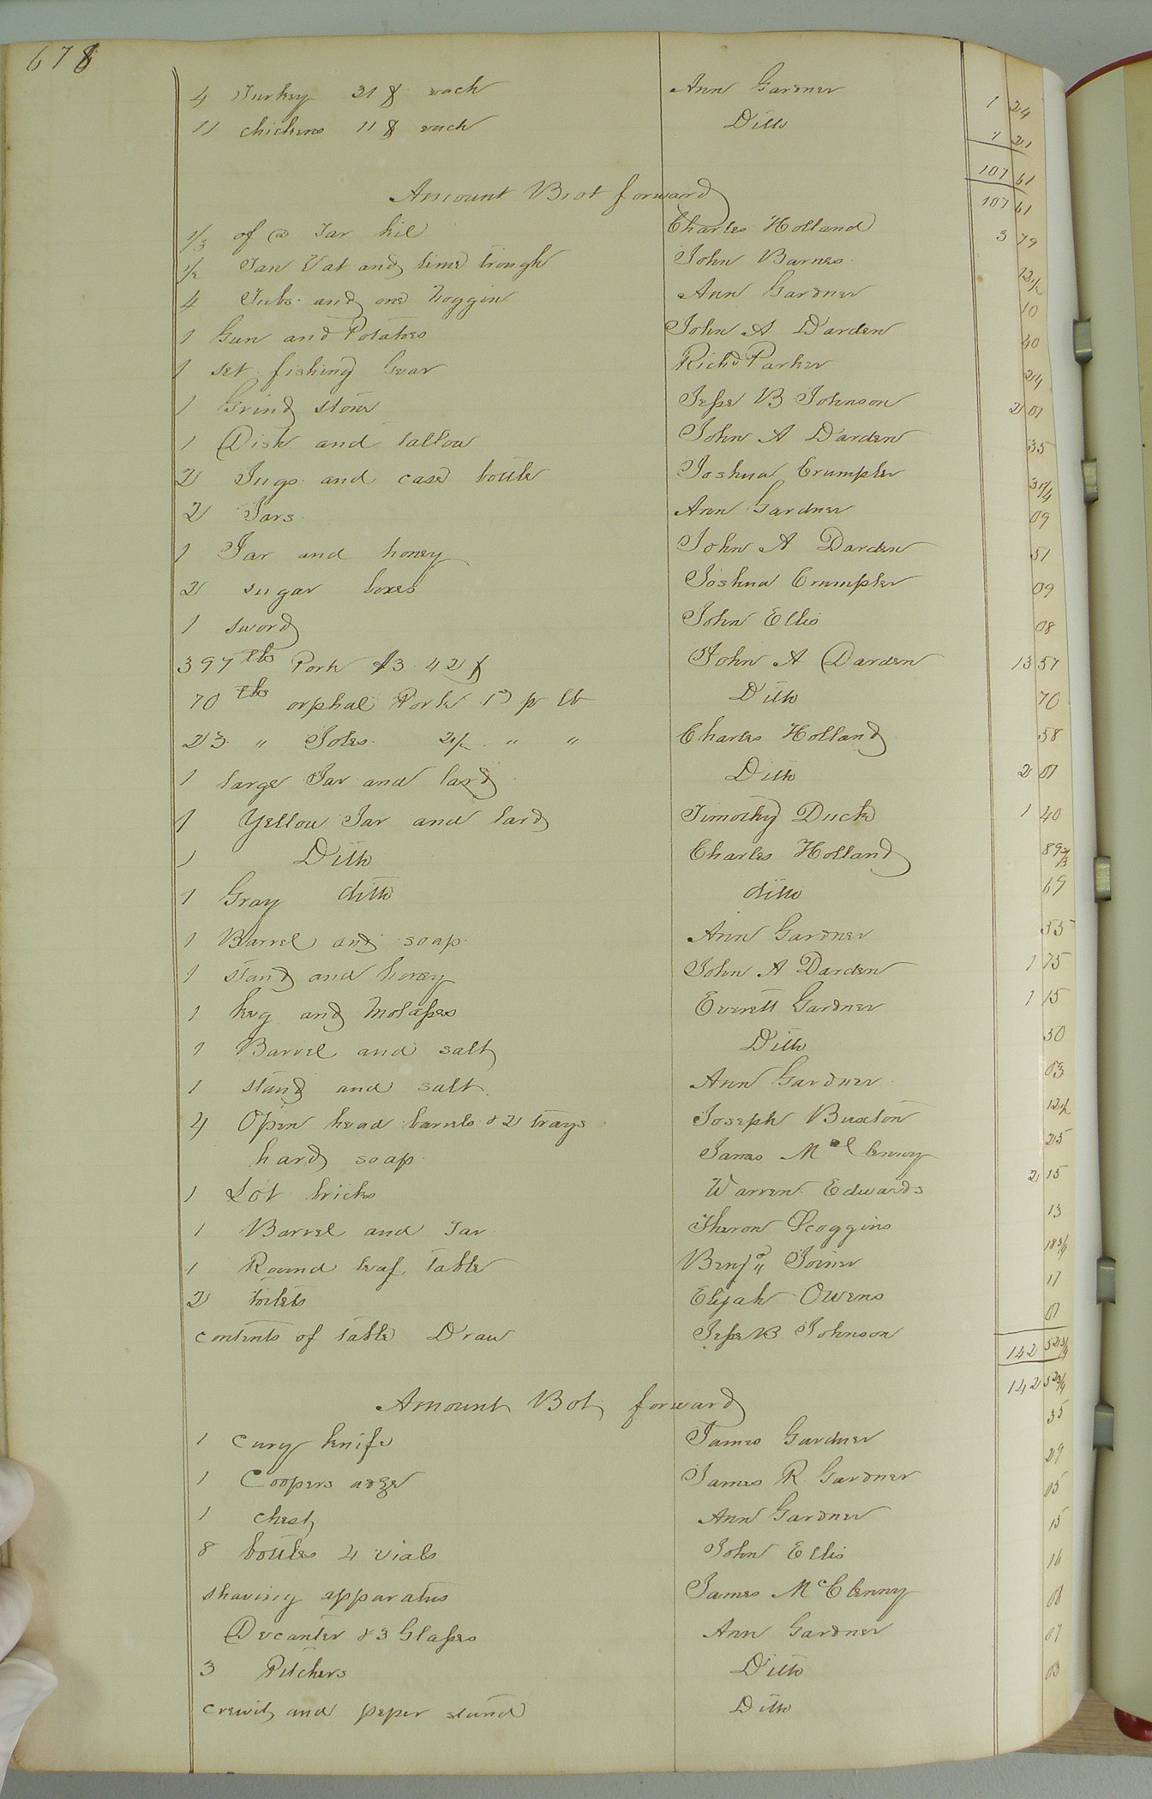 678
4 Turkey 31 ¢ each Ann Gardner 1 24
11 chickens 11 ¢ each Ditto 1 21
107 61
Amount Brot forward 107 61
1/3 of a Tar kil Charles Holland 3 79
1/2 Tan Vat and lime trough John Barnes 12 1/2
4 Tubs and one noggin Ann Gardner 10
1 Gun and Potatoes John A Darden 40
1 set fishing Gear Richd Parker 24
1 Grind stone Jesse B Johnson 2 01
1 Dish and tallow John A Darden 35
2 Jugs and case bottle Joshua Crumpler 31 1/4
2 Jars Ann Gardner 09
1 Jar and honey John A Darden 51
2 sugar boxes Joshua Crumpler 09
1 sword John Ellis 08
397 lbs Pork $3.42 ¢ John A Darden 13 57
70 lbs orphal Pork 1 p lb Ditto 70
23 " Joles 2 1/2 " " Charles Holland 58
1 large Jar and lard Ditto 2 01
1 Yellow Jar and lard Timothy Duck 1 40
1 Ditto Charles Holland 89
1 Gray ditto ditto 69
1 Barrel and soap Ann Gardner 55
1 stand and honey John A Darden 1 75
1 keg and Molasses Everett Gardner 1 15
1 Barrel and salt Ditto 50
1 stand and salt Ann Gardner 03
4 Open head barrels & 2 trays Joseph Buxton 12 1/2
hard soap James McClenny 25
1 Lot bricks Warren Edwards 2 15
1 Barrel and Tar Theron Scoggins 13
1 Round leaf table Benja Joiner 18 3/4
2 toilets Elijah Owens 17
contents of table Draw Jesse B Johnson 01
142 52 3/4
Amount Bot forward 142 52 3/4
1 cury knife James Gardner 35
1 Coopers adze James R Gardner 29
1 chest Ann Gardner 05
8 bottles 4 vials John Ellis 15
shaving apparatus James McClenny 16
Decanter & 3 Glasses Ann Gardner 08
3 Pitchers Ditto 07
crewit and peper stand Ditto 03